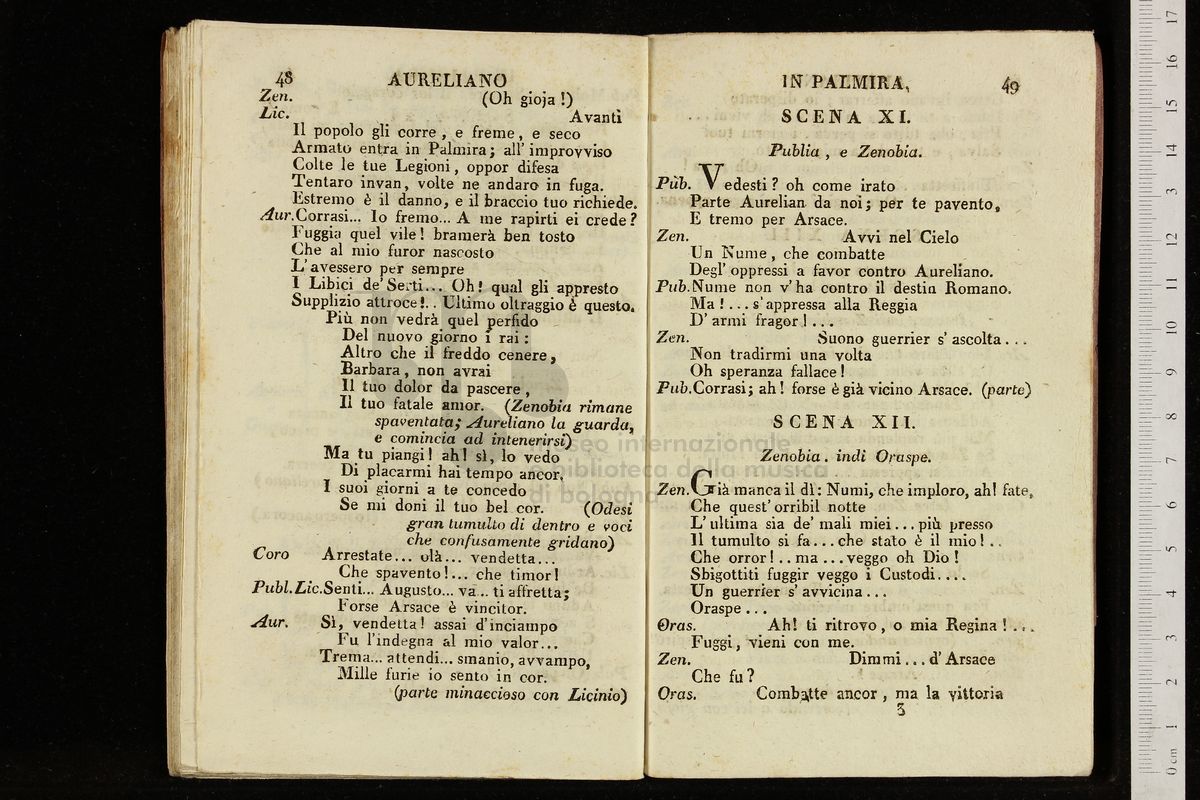 48 AURELIANO
Zen. (Oh gioja!)
Lic. Avanti
Il popolo gli corre, e freme, e seco
Armato entra in Palmira; all' improvviso
Colte le tue Legioni, oppor difesa
Tentaro invan, volte ne andaro in fuga.
Estremo è il danno, e il braccio tuo richiede.
Aur. Corrasi... Io fremo... A me rapirti ei crede?
Fuggia quel vile! bramerà ben tosto
Che al mio furor nascosto
L'avessero per sempre
I Libici de' Serti... Oh! qual gli appresto
Supplizio attroce!.. Ultimo oltraggio è questo.
Più non vedrà quel perfido
Del nuovo giorno i rai:
Altro che il freddo cenere,
Barbara, non avrai
Il tuo dolor da pascere,
Il tuo fatale amor. (Zenobia rimane
spaventata; Aureliano la guarda,
e comincia ad intenerirsi)
Ma tu piangi! ah! sì, lo vedo
Di placarmi hai tempo ancor.
I suoi giorni a te concedo
Se mi doni il tuo bel cor. (Odesi
gran tumulto di dentro e voci
che confusamente gridano)
Coro Arrestate... olà... vendetta...
Che spavento!... che timor!
Publ. Lic. Senti... Augusto... va... ti affretta;
Forse Arsace è vincitor.
Aur. Sì, vendetta! assai d'inciampo
Fu l'indegna al mio valor...
Trema... attendi... smanio, avvampo,
Mille furie io sento in cor.
(parte minaccioso con Licinio)
IN PALMIRA, 49
SCENA XI.
Publia, e Zenobia.
Pub. Vedesti? oh come irato
Parte Aurelian da noi; per te pavento,
E tremo per Arsace.
Zen. Avvi nel Cielo
Un Nume, che combatte
Degl' oppressi a favor contro Aureliano.
Pub. Nume non v'ha contro il destin Romano.
Ma!... s'appressa alla Reggia
D' armi fragor!...
Zen. Suono guerrier s' ascolta...
Non tradirmi una volta
Oh speranza fallace!
Pub. Corrasi; ah! forse è già vicino Arsace. (parte)
SCENA XII.
Zenobia. indi Oraspe.
Zen. Già manca il dì: Numi, che imploro, ah! fate,
Che quest' orribil notte
L' ultima sia de' mali miei... più presso
Il tumulto si fa... che stato è il mio!..
Che orror!.. ma... veggo oh Dio!
Sbigottiti fuggir veggo i Custodi....
Un guerrier s' avvicina...
Oraspe...
Oras. Ah! ti ritrovo, o mia Regina!...
Fuggi, vieni con me.
Zen. Dimmi... d' Arsace
Che fu?
Oras. Combatte ancor, ma la vittoria
3
museo internazionale
e biblioteca della musica
di bologna
0 cm 1 2 3 4 5 6 7 8 9 10 11 12 13 14 15 16 17